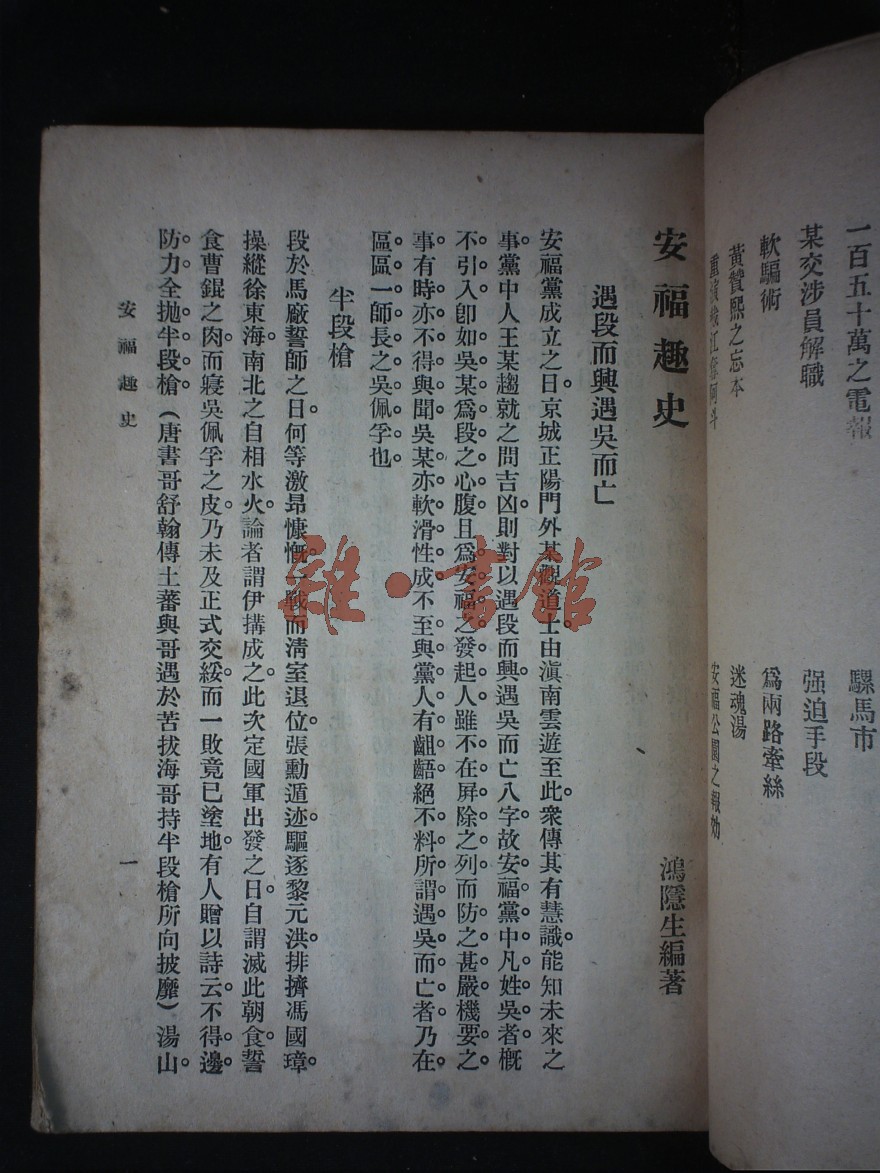 一百五十萬之電報
驟馬市
某交涉員解職
强迫手段
軟騙術
爲兩路牽絲
黃贊熙之忘本
迷魂湯
重演
安福公園之報効
安福趣史
鴻隱生編著
遇段而興遇吳而亡
安福黨成立之日。京城正陽門外某觀道士由滇南雲遊至此。衆傳其有慧識。能知未來之
事。黨中人王某趨就之問吉凶。則對以遇段而興。遇吳而亡八字。故安福黨中凡姓吳者。槪
不引入。卽如吳某。爲段之心腹。且爲安福之發起人。雖不在屏除之列。而防之甚嚴。機要之
事。有時亦不得與聞。吳某亦軟滑性成。不至與黨人有齟齬。絕不料所謂遇吳而亡者。乃在
區區一師長之吳佩孚也。
半段槍
段於馬廠誓師之日。何等激昻慷慨。一戰而淸室退位。張勳遁迹。驅逐黎元洪。排擠馮國璋。
操縱徐東海。南北之自相水火。論者謂伊搆成之。此次定國軍出發之日。自謂滅此朝食。誓
食曹錕之肉。而寢吳佩孚之皮。乃未及正式交綏。而一敗竟已塗地。有人贈以詩云。不得邊
防力。全抛半段槍。(唐書哥舒翰傳土蕃與哥遇於苦拔海哥持半段槍所向披靡)湯山
安福趣史
一
雜·書館